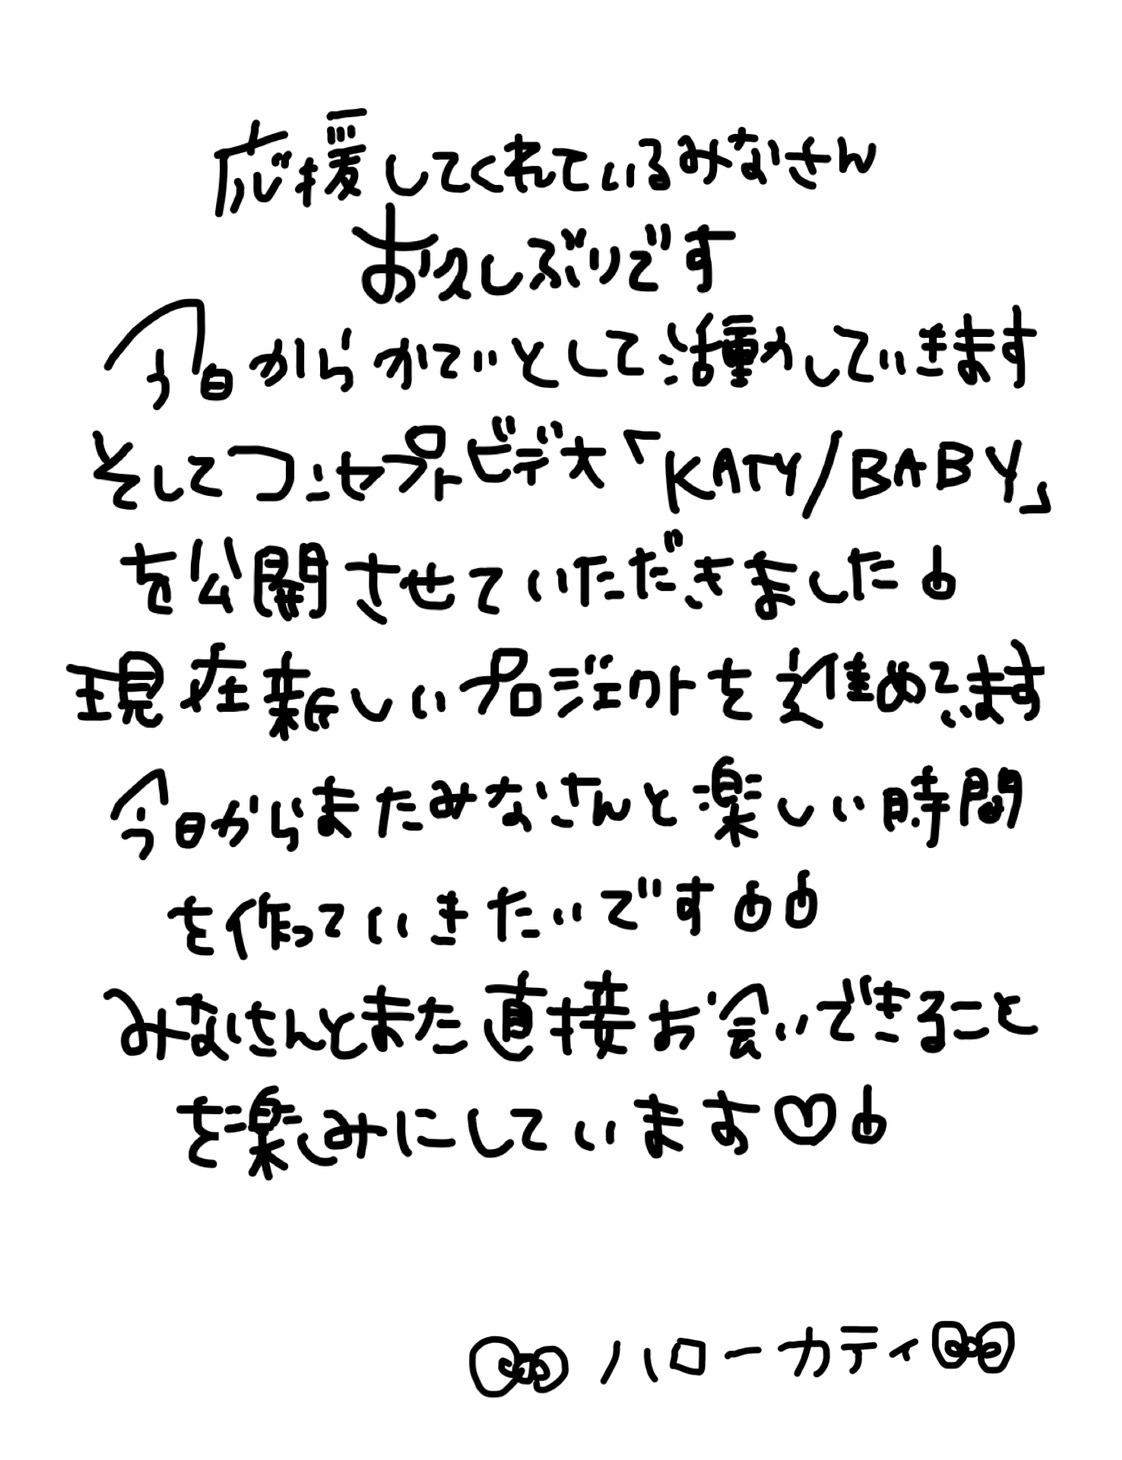 応援してくれているみなさん
お久しぶりです
今日からかてぃとして活動していきます
そしてコンセプトビデオ「KATY/BABY」
を公開させていただきました
現在新しいプロジェクトを進めてます
今日からまたみなさんと楽しい時間
を作っていきたいです
みなさんとまた直接お会いできること
を楽しみにしています♡
ハローカティ